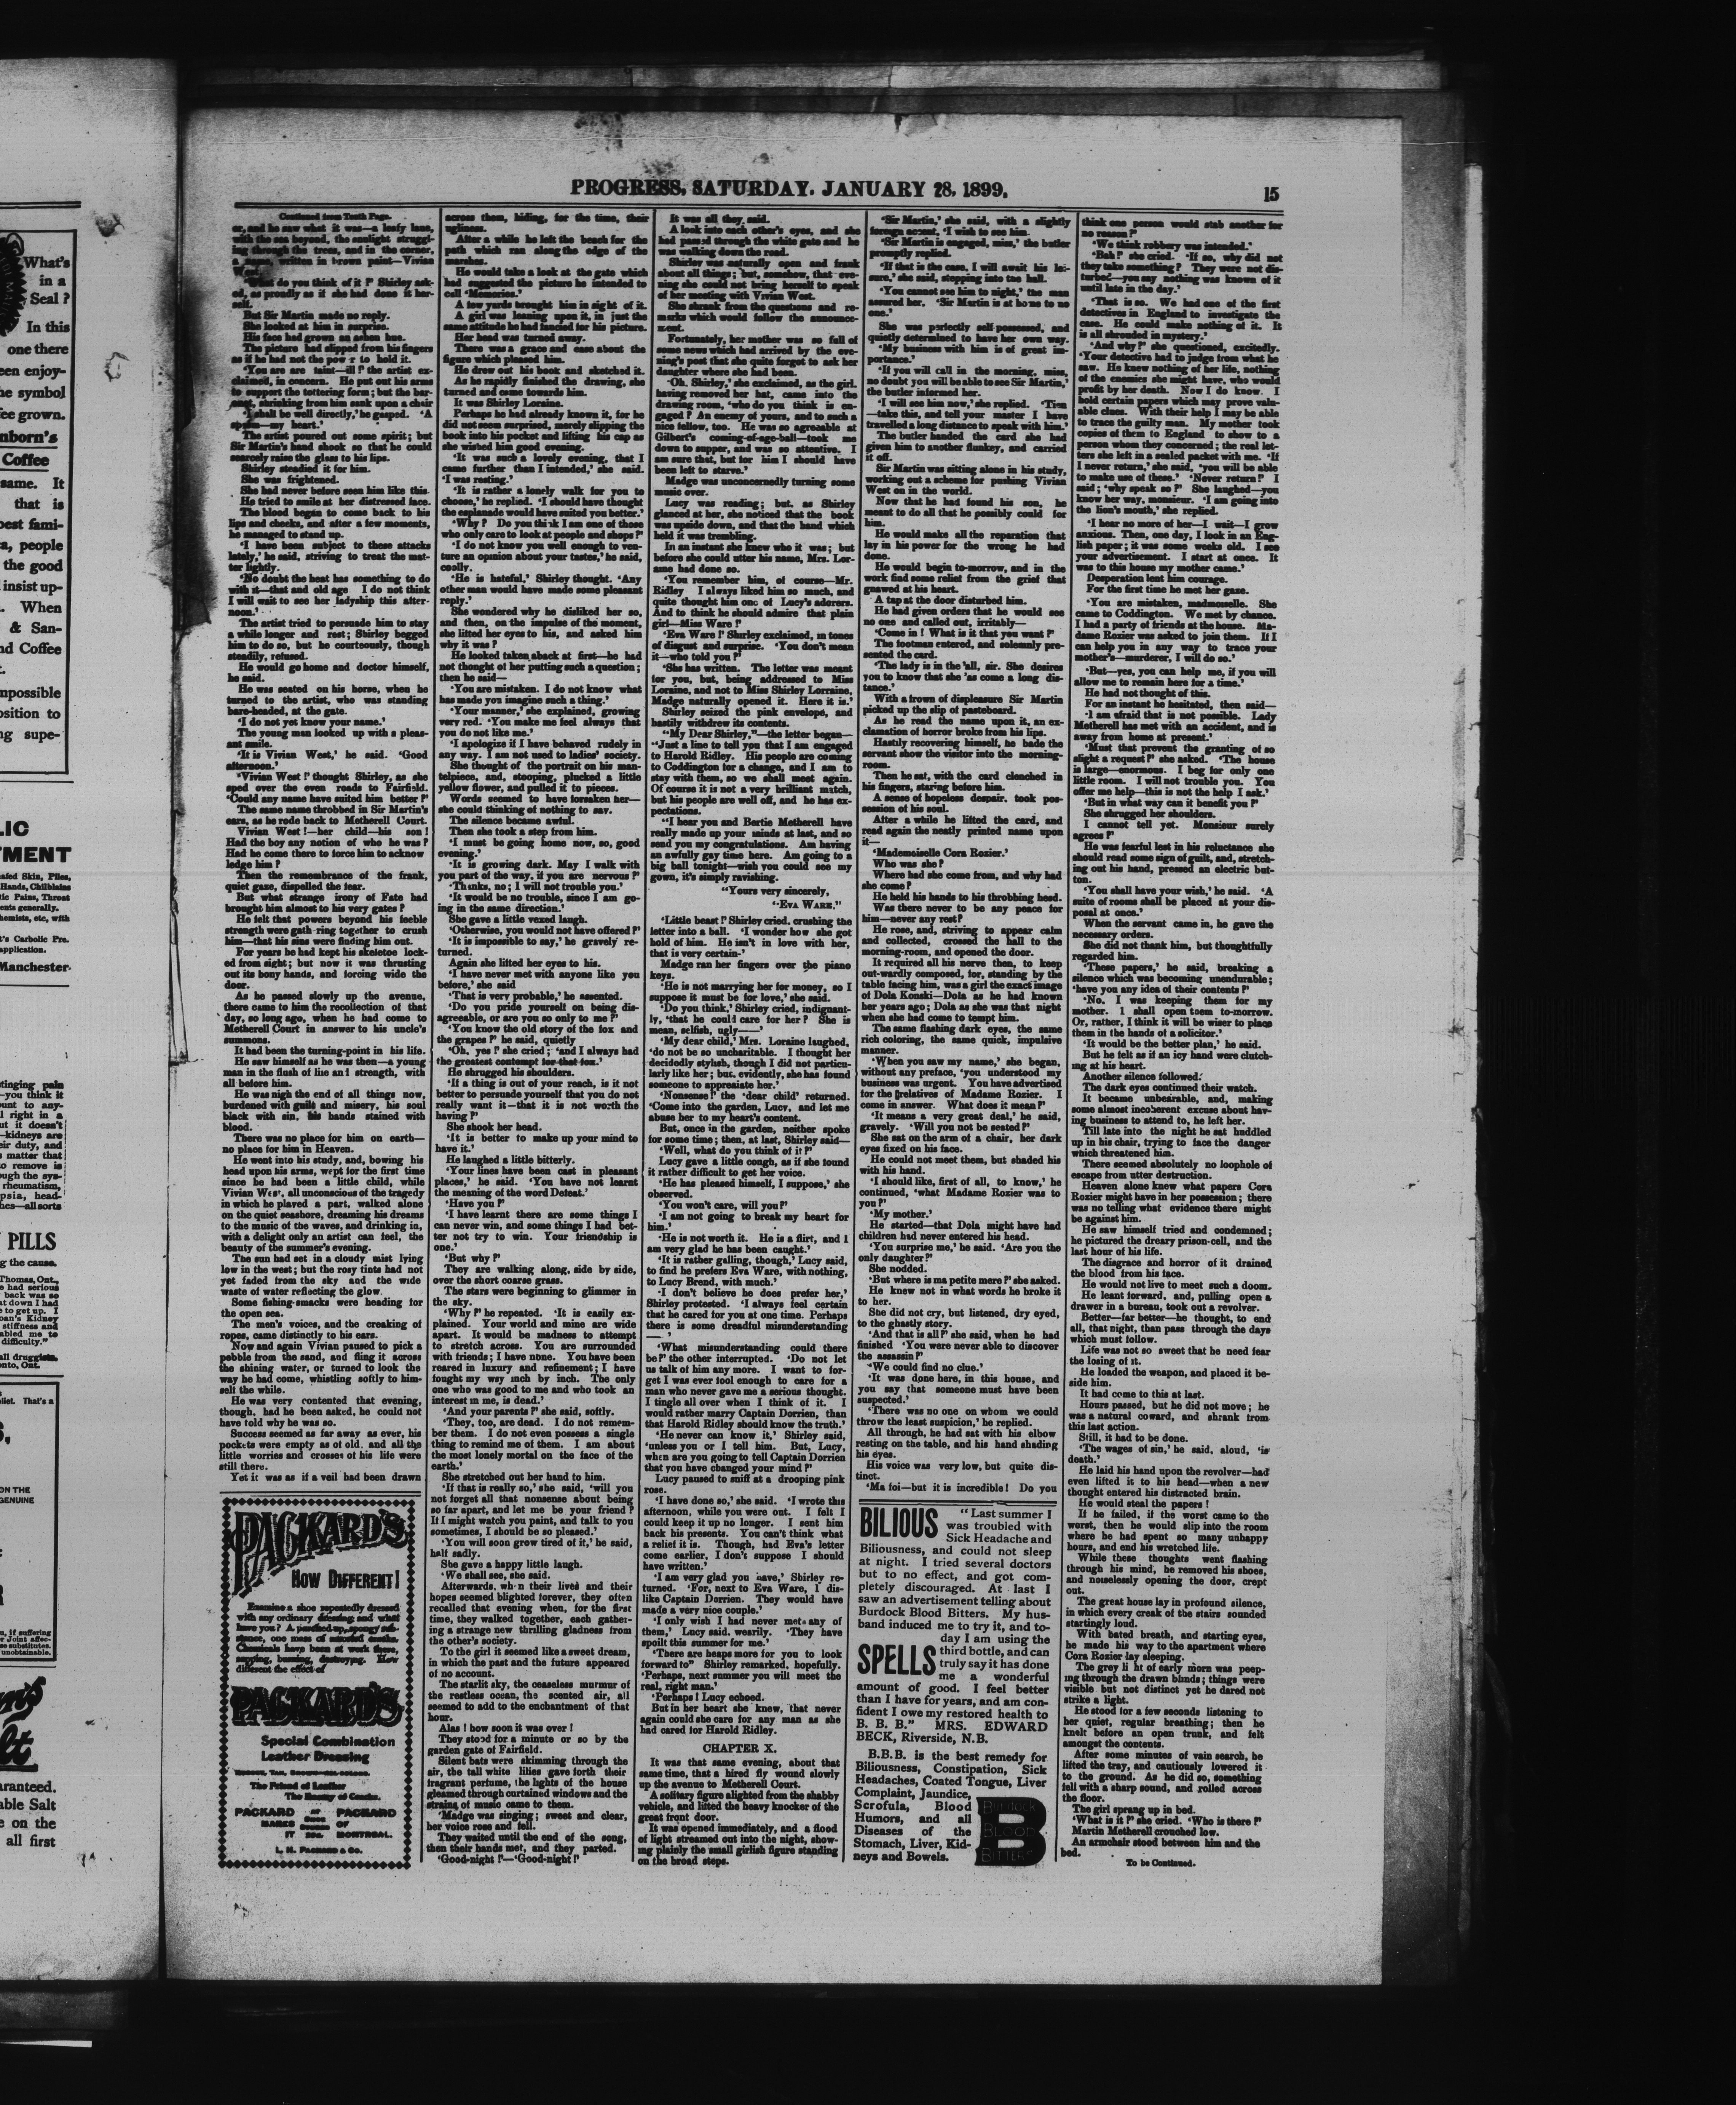 PROGRESS, SATURDAY, JANUARY 28, 1899.
15
Continued from Tenth Page.
er, and he saw what it was—a leafy lane,
with the sea beyond, the sunlight struggl-
ing through the trees, and in the corner,
a name, written in brown paint—Vivian
West.
'What do you think of it?' Shirley ask-
ed, as proudly as if she had done it her-
self.
But Sir Martin made no reply.
She looked at him in surprise.
His face had grown an ashen hue.
The picture had slipped from his fingers
as if he had not the power to hold it.
'You are are faint—ill?' the artist ex-
claimed, in concern. He put out his arms
to support the tottering form; but the bar-
onet, shrinking from him sank upon a chair
'I shall be well directly,' he gasped. 'A
spasm—my heart.'
The artist poured out some spirit; but
Sir Martin's hand shook so that he could
scarcely raise the glass to his lips.
Shirley steadied it for him.
She was frightened.
She had never before seen him like this.
He tried to smile at her distressed face.
The blood began to come back to his
lips and cheeks, and after a few moments,
he managed to stand up.
'I have been subject to these attacks
lately,' he said, striving to treat the mat-
ter lightly.
'No doubt the heat has something to do
with it—that and old age I do not think
I will wait to see her ladyship this after-
noon.'
The artist tried to persuade him to stay
a while longer and rest; Shirley begged
him to do so, but he courteously, though
steadily, refused.
He would go home and doctor himself,
he said.
He was seated on his horse, when he
turned to the artist, who was standing
bare-headed, at the gate.
'I do not yet know your name.'
The young man looked up with a pleas-
ant smile.
'It is Vivian West,' he said. 'Good
afternoon.'
'Vivian West!' thought Shirley, as she
sped over the even roads to Fairfield.
'Could any name have suited him better?'
The same name throbbed in Sir Martin's
ears, as he rode back to Metherell Court.
Vivian West!—her child—his son!
Had the boy any notion of who he was?
Had he come there to force him to acknow
ledge him?
Then the remembrance of the frank,
quiet gaze, dispelled the fear.
But what strange irony of Fate had
brought him almost to his very gates?
He felt that powers beyond his feeble
strength were gathering together to crush
him—that his sins were finding him out.
For years he had kept his skeleton lock-
ed from sight; but now it was thrusting
out its bony hands, and forcing wide the
door.
As he passed slowly up the avenue,
there came to him the recollection of that
day, so long ago, when he had come to
Metherell Court in answer to his uncle's
summons.
It had been the turning-point in his life.
He saw himself as he was then—a young
man in the flush of life and strength, with
all before him.
He was nigh the end of all things now,
burdened with guilt and misery, his soul
black with sin, his hands stained with
blood.
There was no place for him on earth—
no place for him in Heaven.
He went into his study, and, bowing his
head upon his arms, wept for the first time
since he had been a little child, while
Vivian West, all unconscious of the tragedy
in which he played a part, walked alone
on the quiet seashore, dreaming his dreams
to the music of the waves, and drinking in,
with a delight only an artist can feel, the
beauty of the summer's evening.
The sun had set in a cloudy mist lying
low in the west; but the rosy tints had not
yet faded from the sky and the wide
waste of water reflecting the glow.
Some fishing-smacks were heading for
the open sea.
The men's voices, and the creaking of
ropes, came distinctly to his ears.
Now and again Vivian paused to pick a
pebble from the sand, and fling it across
the shining water, or turned to look the
way he had come, whistling softly to him-
self the while.
He was very contented that evening,
though, had he been asked, he could not
have told why he was so.
Success seemed as far away as ever, his
pockets were empty as of old, and all the
little worries and crosses of his life were
still there.
Yet it was as if a veil had been drawn
PACKARD'S
HOW DIFFERENT!
Examine a shoe repeatedly dressed
with any ordinary dressing and what
have you? A parched up, spongy sub-
stance, one mass of
Chemicals have been at work there,
sapping, burning, destroying. How
different the effect of
PACKARD'S
Special Combination
Leather Dressing
The Friend of Leather
The Enemy of Cracks.
PACKARD
MAKES
IT
25c.
PACKARD
OF
MONTREAL.
L. H. PACKARD & CO.
across them, hiding, for the time, their
ugliness.
After a while he left the beach for the
path which ran along the edge of the
marshes.
He would take a look at the gate which
had suggested the picture he intended to
call 'Memories.'
A few yards brought him in sight of it.
A girl was leaning upon it, in just the
same attitude he had fancied for his picture.
Her head was turned away.
There was a grace and ease about the
figure which pleased him.
He drew out his book and sketched it.
As he rapidly finished the drawing, she
turned and came towards him.
It was Shirley Loraine.
Perhaps he had already known it, for he
did not seem surprised, merely slipping the
book into his pocket and lifting his cap as
she wished him good evening.
'It was such a lovely evening, that I
came further than I intended,' she said.
'I was resting.'
'It is rather a lonely walk for you to
choose,' he replied. 'I should have thought
the esplanade would have suited you better.'
'Why? Do you think I am one of those
who only care to look at people and shops?'
'I do not know you well enough to ven-
ture an opinion about your tastes,' he said,
coolly.
'He is hateful,' Shirley thought. 'Any
other man would have made some pleasant
reply.'
She wondered why he disliked her so,
and then, on the impulse of the moment,
she lifted her eyes to his, and asked him
why it was?
He looked taken aback at first—he had
not thought of her putting such a question;
then he said—
'You are mistaken. I do not know what
has made you imagine such a thing.'
'Your manner,' she explained, growing
very red. 'You make me feel always that
you do not like me.'
'I apologize if I have behaved rudely in
any way. I am not used to ladies' society.
She thought of the portrait on his man-
telpiece, and, stooping, plucked a little
yellow flower, and pulled it to pieces.
Words seemed to have forsaken her—
she could thinking of nothing to say.
The silence became awful.
Then she took a step from him.
'I must be going home now, so, good
evening.'
'It is growing dark. May I walk with
you part of the way, if you are nervous?'
'Thanks, no; I will not trouble you.'
'It would be no trouble, since I am go-
ing in the same direction.'
She gave a little vexed laugh.
'Otherwise, you would not have offered?'
'It is impossible to say,' he gravely re-
turned.
Again she lifted her eyes to his.
'I have never met with anyone like you
before,' she said
'That is very probable,' he assented.
'Do you pride yourself on being dis-
agreeable, or are you so only to me?'
'You know the old story of the fox and
the grapes?' he said, quietly
'Oh, yes!' she cried; 'and I always had
the greatest contempt for that fox.'
He shrugged his shoulders.
'If a thing is out of your reach, is it not
better to persuade yourself that you do not
really want it—that it is not worth the
having?'
She shook her head.
'It is better to make up your mind to
have it.'
He laughed a little bitterly.
'Your lines have been cast in pleasant
places,' he said. 'You have not learnt
the meaning of the word Defeat.'
'Have you?'
'I have learnt there are some things I
can never win, and some things I had bet-
ter not try to win. Your friendship is
one.'
'But why?'
They are walking along, side by side,
over the short coarse grass.
The stars were beginning to glimmer in
the sky.
'Why?' he repeated. 'It is easily ex-
plained. Your world and mine are wide
apart. It would be madness to attempt
to stretch across. You are surrounded
with friends; I have none. You have been
reared in luxury and refinement; I have
fought my way inch by inch. The only
one who was good to me and who took an
interest in me, is dead.'
'And your parents?' she said, softly.
'They, too, are dead. I do not remem-
ber them. I do not even possess a single
thing to remind me of them. I am about
the most lonely mortal on the face of the
earth.'
She stretched out her hand to him.
'If that is really so,' she said, 'will you
not forget all that nonsense about being
so far apart, and let me be your friend?
If I might watch you paint, and talk to you
sometimes, I should be so pleased.'
'You will soon grow tired of it,' he said,
half sadly.
She gave a happy little laugh.
'We shall see, she said.
Afterwards, when their lives and their
hopes seemed blighted forever, they often
recalled that evening when, for the first
time, they walked together, each gather-
ing a strange new thrilling gladness from
the other's society.
To the girl it seemed like a sweet dream,
in which the past and the future appeared
of no account.
The starlit sky, the ceaseless murmur of
the restless ocean, the scented air, all
seemed to add to the enchantment of that
hour.
Alas! how soon it was over!
They stood for a minute or so by the
garden gate of Fairfield.
Silent bats were skimming through the
air, the tall white lilies gave forth their
fragrant perfume, the lights of the house
gleamed through curtained windows and the
strains of music came to them.
'Madge was singing; sweet and clear,
her voice rose and fell.
They waited until the end of the song,
then their hands met, and they parted.
'Good-night!'—'Good-night!'
It was all they said.
A look into each other's eyes, and she
had passed through the white gate and he
was walking down the road.
Shirley was naturally open and frank
about all things; but, somehow, that eve-
ning she could not bring herself to speak
of her meeting with Vivian West.
She shrank from the questions and re-
marks which would follow the announce-
ment.
Fortunately, her mother was so full of
some news which had arrived by the eve-
ning's post that she quite forgot to ask her
daughter where she had been.
'Oh, Shirley,' she exclaimed, as the girl,
having removed her hat, came into the
drawing room, 'who do you think is en-
gaged? An enemy of yours, and to such a
nice fellow, too. He was so agreeable at
Gilbert's coming-of-age-ball—took me
down to supper, and was so attentive. I
am sure that, but for him I should have
been left to starve.'
Madge was unconcernedly turning some
music over.
Lucy was reading; but, as Shirley
glanced at her, she noticed that the book
was upside down, and that the hand which
held it was trembling.
In an instant she knew who it was; but
before she could utter his name, Mrs. Lor-
aine had done so.
'You remember him, of course—Mr.
Ridley I always liked him so much, and
quite thought him one of Lucy's adorers.
And to think he should admire that plain
girl—Miss Ware!'
'Eva Ware!' Shirley exclaimed, in tones
of disgust and surprise. 'You don't mean
it—who told you?'
'She has written. The letter was meant
for you, but, being addressed to Miss
Loraine, and not to Miss Shirley Lorraine,
Madge naturally opened it. Here it is.'
Shirley seized the pink envelope, and
hastily withdrew its contents.
"My Dear Shirley,"—the letter began—
"Just a line to tell you that I am engaged
to Harold Ridley. His people are coming
to Coddington for a change, and I am to
stay with them, so we shall meet again.
Of course it is not a very brilliant match,
but his people are well off, and he has ex-
pectations.
"I hear you and Bertie Metherell have
really made up your minds at last, and so
send you my congratulations. Am having
an awfully gay time here. Am going to a
big ball tonight—wish you could see my
gown, it's simply ravishing.
"Yours very sincerely,
"EVA WARE."
'Little beast!' Shirley cried, crushing the
letter into a ball. 'I wonder how she got
hold of him. He isn't in love with her,
that is very certain-'
Madge ran her fingers over the piano
keys.
'He is not marrying her for money, so I
suppose it must be for love,' she said.
'Do you think,' Shirley cried, indignant-
ly, 'that he could care for her? She is
mean, selfish, ugly——'
'My dear child,' Mrs. Loraine laughed,
'do not be so uncharitable. I thought her
decidedly stylish, though I did not particu-
larly like her; but, evidently, she has found
someone to appreciate her.'
'Nonsense!' the 'dear child' returned.
'Come into the garden, Lucy, and let me
abuse her to my heart's content.
But, once in the garden, neither spoke
for some time; then, at last, Shirley said—
'Well, what do you think of it?'
Lucy gave a little cough, as if she found
it rather difficult to get her voice.
'He has pleased himself, I suppose,' she
observed.
'You won't care, will you?'
'I am not going to break my heart for
him.'
'He is not worth it. He is a flirt, and I
am very glad he has been caught.'
'It is rather galling, though,' Lucy said,
to find he prefers Eva Ware, with nothing,
to Lucy Brend, with much.'
'I don't believe he does prefer her,'
Shirley protested. 'I always feel certain
that he cared for you at one time. Perhaps
there is some dreadful misunderstanding
— '
'What misunderstanding could there
be?' the other interrupted. 'Do not let
us talk of him any more. I want to for-
get I was ever fool enough to care for a
man who never gave me a serious thought.
I tingle all over when I think of it. I
would rather marry Captain Dorrien, than
that Harold Ridley should know the truth.'
'He never can know it,' Shirley said,
'unless you or I tell him. But, Lucy,
when are you going to tell Captain Dorrien
that you have changed your mind?'
Lucy paused to sniff at a drooping pink
rose.
'I have done so,' she said. 'I wrote this
afternoon, while you were out. I felt I
could keep it up no longer. I sent him
back his presents. You can't think what
a relief it is. Though, had Eva's letter
come earlier, I don't suppose I should
have written.'
'I am very glad you have,' Shirley re-
turned. 'For, next to Eva Ware, I dis-
like Captain Dorrien. They would have
made a very nice couple.'
'I only wish I had never met any of
them,' Lucy said. wearily. 'They have
spoilt this summer for me.'
'There are heaps more for you to look
forward to" Shirley remarked, hopefully.
'Perhaps, next summer you will meet the
real, right man.'
'Perhaps! Lucy echoed.
But in her heart she knew, that never
again could she care for any man as she
had cared for Harold Ridley.
CHAPTER X.
It was that same evening, about that
same time, that a hired fly wound slowly
up the avenue to Metherell Court.
A solitary figure alighted from the shabby
vehicle, and lifted the heavy knocker of the
great front door.
It was opened immediately, and a flood
of light streamed out into the night, show-
ing plainly the small girlish figure standing
on the broad steps.
'Sir Martin,' she said, with a slightly
foreign accent, 'I wish to see him.
'Sir Martin is engaged, miss,' the butler
promptly replied.
'If that is the case, I will await his lei-
sure,' she said, stepping into the hall.
'You cannot see him to night,' the man
assured her. 'Sir Martin is at home to no
one.'
She was perfectly self-possessed, and
quietly determined to have her own way.
'My business with him is of great im-
portance.'
'If you will call in the morning, miss,
no doubt you will be able to see Sir Martin,'
the butler informed her.
'I will see him now,' she replied. 'Tien
—take this, and tell your master I have
travelled a long distance to speak with him.'
The butler handed the card she had
given him to another flunkey, and carried
it off.
Sir Martin was sitting alone in his study,
working out a scheme for pushing Vivian
West on in the world.
Now that he had found his son, he
meant to do all that he possibly could for
him.
He would make all the reparation that
lay in his power for the wrong he had
done.
He would begin to-morrow, and in the
work find some relief from the grief that
gnawed at his heart.
A tap at the door disturbed him.
He had given orders that he would see
no one and called out, irritably—
'Come in! What is it that you want?'
The footman entered, and solemnly pre-
sented the card.
'The lady is in the 'all, sir. She desires
you to know that she 'as come a long dis-
tance.'
With a frown of displeasure Sir Martin
picked up the slip of pasteboard.
As he read the name upon it, an ex-
clamation of horror broke from his lips.
Hastily recovering himself, he bade the
servant show the visitor into the morning-
room.
Then he sat, with the card clenched in
his fingers, staring before him.
A sense of hopeless despair, took pos-
session of his soul.
After a while he lifted the card, and
read again the neatly printed name upon
it—
'Mademoiselle Cora Rozier.'
Who was she?
Where had she come from, and why had
she come?
He held his hands to his throbbing head.
Was there never to be any peace for
him—never any rest?
He rose, and, striving to appear calm
and collected, crossed the hall to the
morning-room, and opened the door.
It required all his nerve then, to keep
out-wardly composed, for, standing by the
table facing him, was a girl the exact image
of Dola Konski—Dola as he had known
her years ago; Dola as she was that night
when she had come to tempt him.
The same flashing dark eyes, the same
rich coloring, the same quick, impulsive
manner.
'When you saw my name,' she began,
without any preface, 'you understood my
business was urgent. You have advertised
for the relatives of Madame Rozier. I
come in answer. What does it mean?'
'It means a very great deal,' he said,
gravely. 'Will you not be seated?'
She sat on the arm of a chair, her dark
eyes fixed on his face.
He could not meet them, but shaded his
with his hand.
'I should like, first of all, to know,' he
continued, 'what Madame Rozier was to
you?'
'My mother.'
He started—that Dola might have had
children had never entered his head.
'You surprise me,' he said. 'Are you the
only daughter?'
She nodded.
'But where is ma petite mere?' she asked.
He knew not in what words he broke it
to her.
She did not cry, but listened, dry eyed,
to the ghastly story.
'And that is all?' she said, when he had
finished 'You were never able to discover
the assassin?'
'We could find no clue.'
'It was done here, in this house, and
you say that someone must have been
suspected.'
'There was no one on whom we could
throw the least suspicion,' he replied.
All through, he had sat with his elbow
resting on the table, and his hand shading
his eyes.
His voice was very low, but quite dis-
tinct.
'Ma foi—but it is incredible! Do you
BILIOUS
SPELLS
"Last summer I
was troubled with
Sick Headache and
Biliousness, and could not sleep
at night. I tried several doctors
but to no effect, and got com-
pletely discouraged. At last I
saw an advertisement telling about
Burdock Blood Bitters. My hus-
band induced me to try it, and to-
day I am using the
third bottle, and can
truly say it has done
me a wonderful
amount of good. I feel better
than I have for years, and am con-
fident I owe my restored health to
B. B. B." MRS. EDWARD
BECK, Riverside, N.B.
B.B.B. is the best remedy for
Biliousness, Constipation, Sick
Headaches, Coated Tongue, Liver
Complaint, Jaundice,
Scrofula, Blood
Humors, and all
Diseases of the
Stomach, Liver, Kid-
neys and Bowels.
B
BURDOCK
BLOOD
BITTERS
think one person would stab another for
no reason?'
'We think robbery was intended.'
'Bah!' she cried. 'If so, why did not
they take something? They were not dis-
turbed—you say nothing was known of it
until late in the day.'
'That is so. We had one of the first
detectives in England to investigate the
case. He could make nothing of it. It
is all shrouded in mystery.'
'And why?' she questioned, excitedly.
'Your detective had to judge from what he
saw. He knew nothing of her life, nothing
of the enemies she might have, who would
profit by her death. Now I do know. I
hold certain papers which may prove valu-
able clues. With their help I may be able
to trace the guilty man. My mother took
copies of them to England to show to a
person whom they concerned; the real let-
ters she left in a sealed packet with me. 'If
I never return,' she said, 'you will be able
to make use of these.' 'Never return!' I
said; 'why speak so?' She laughed—you
know her way, monsieur. 'I am going into
the lion's mouth,' she replied.
'I hear no more of her—I wait—I grow
anxious. Then, one day, I look in an Eng-
lish paper; it was some weeks old. I see
your advertisement. I start at once. It
was to this house my mother came.'
Desperation lent him courage.
For the first time he met her gaze.
'You are mistaken, madmoiselle. She
came to Coddington. We met by chance.
I had a party of friends at the house. Ma-
dame Rozier was asked to join them. If I
can help you in any way to trace your
mother's—murderer, I will do so.'
'But—yes, you can help me, if you will
allow me to remain here for a time.'
He had not thought of this.
For an instant he hesitated, then said—
'I am afraid that is not possible. Lady
Metherell has met with an accident, and is
away from home at present.'
'Must that prevent the granting of so
slight a request?' she asked. 'The house
is large—enormous. I beg for only one
little room. I will not trouble you. You
offer me help—this is not the help I ask.'
'But in what way can it benefit you?'
She shrugged her shoulders.
I cannot tell yet. Monsieur surely
agrees?'
He was fearful lest in his reluctance she
should read some sign of guilt, and, stretch-
ing out his hand, pressed an electric but-
ton.
'You shall have your wish,' he said. 'A
suite of rooms shall be placed at your dis-
posal at once.'
When the servant came in, he gave the
necessary orders.
She did not thank him, but thoughtfully
regarded him.
'These papers,' he said, breaking a
silence which was becoming unendurable,
'have you any idea of their contents?'
'No. I was keeping them for my
mother. I shall open them to-morrow.
Or, rather, I think it will be wiser to place
them in the hands of a solicitor.'
'It would be the better plan,' he said.
But he felt as if an icy hand were clutch-
ing at his heart.
Another silence followed.
The dark eyes continued their watch.
It became unbearable, and, making
some almost incoherent excuse about hav-
ing business to attend to, he left her.
Till late into the night he sat huddled
up in his chair, trying to face the danger
which threatened him.
There seemed absolutely no loophole of
escape from utter destruction.
Heaven alone knew what papers Cora
Rozier might have in her possession; there
was no telling what evidence there might
be against him.
He saw himself tried and condemned;
he pictured the dreary prison-cell, and the
last hour of his life.
The disgrace and horror of it drained
the blood from his face.
He would not live to meet such a doom.
He leant forward, and, pulling open a
drawer in a bureau, took out a revolver.
Better—far better—he thought, to end
all, that night, than pass through the days
which must follow.
Life was not so sweet that he need fear
the losing of it.
He loaded the weapon, and placed it be-
side him.
It had come to this at last.
Hours passed, but he did not move; he
was a natural coward, and shrank from
this last action.
Still, it had to be done.
'The wages of sin,' he said, aloud, 'is
death.'
He laid his hand upon the revolver—had
even lifted it to his head—when a new
thought entered his distracted brain.
He would steal the papers!
If he failed, if the worst came to the
worst, then he would slip into the room
where he had spent so many unhappy
hours, and end his wretched life.
While these thoughts went flashing
through his mind, he removed his shoes,
and noiselessly opening the door, crept
out.
The great house lay in profound silence,
in which every creak of the stairs sounded
startingly loud.
With bated breath, and starting eyes,
he made his way to the apartment where
Cora Rozier lay sleeping.
The grey li ht of early morn was peep-
ing through the drawn blinds; things were
visible but not distinct yet he dared not
strike a light.
He stood for a few seconds listening to
her quiet, regular breathing; then he
knelt before an open trunk, and felt
amongst the contents.
After some minutes of vain search, he
lifted the tray, and cautiously lowered it
to the ground. As he did so, something
fell with a sharp sound, and rolled across
the floor.
The girl sprang up in bed.
'What is it?' she cried. 'Who is there?'
Martin Metherell crouched low.
An armchair stood between him and the
bed.
To be Continued.